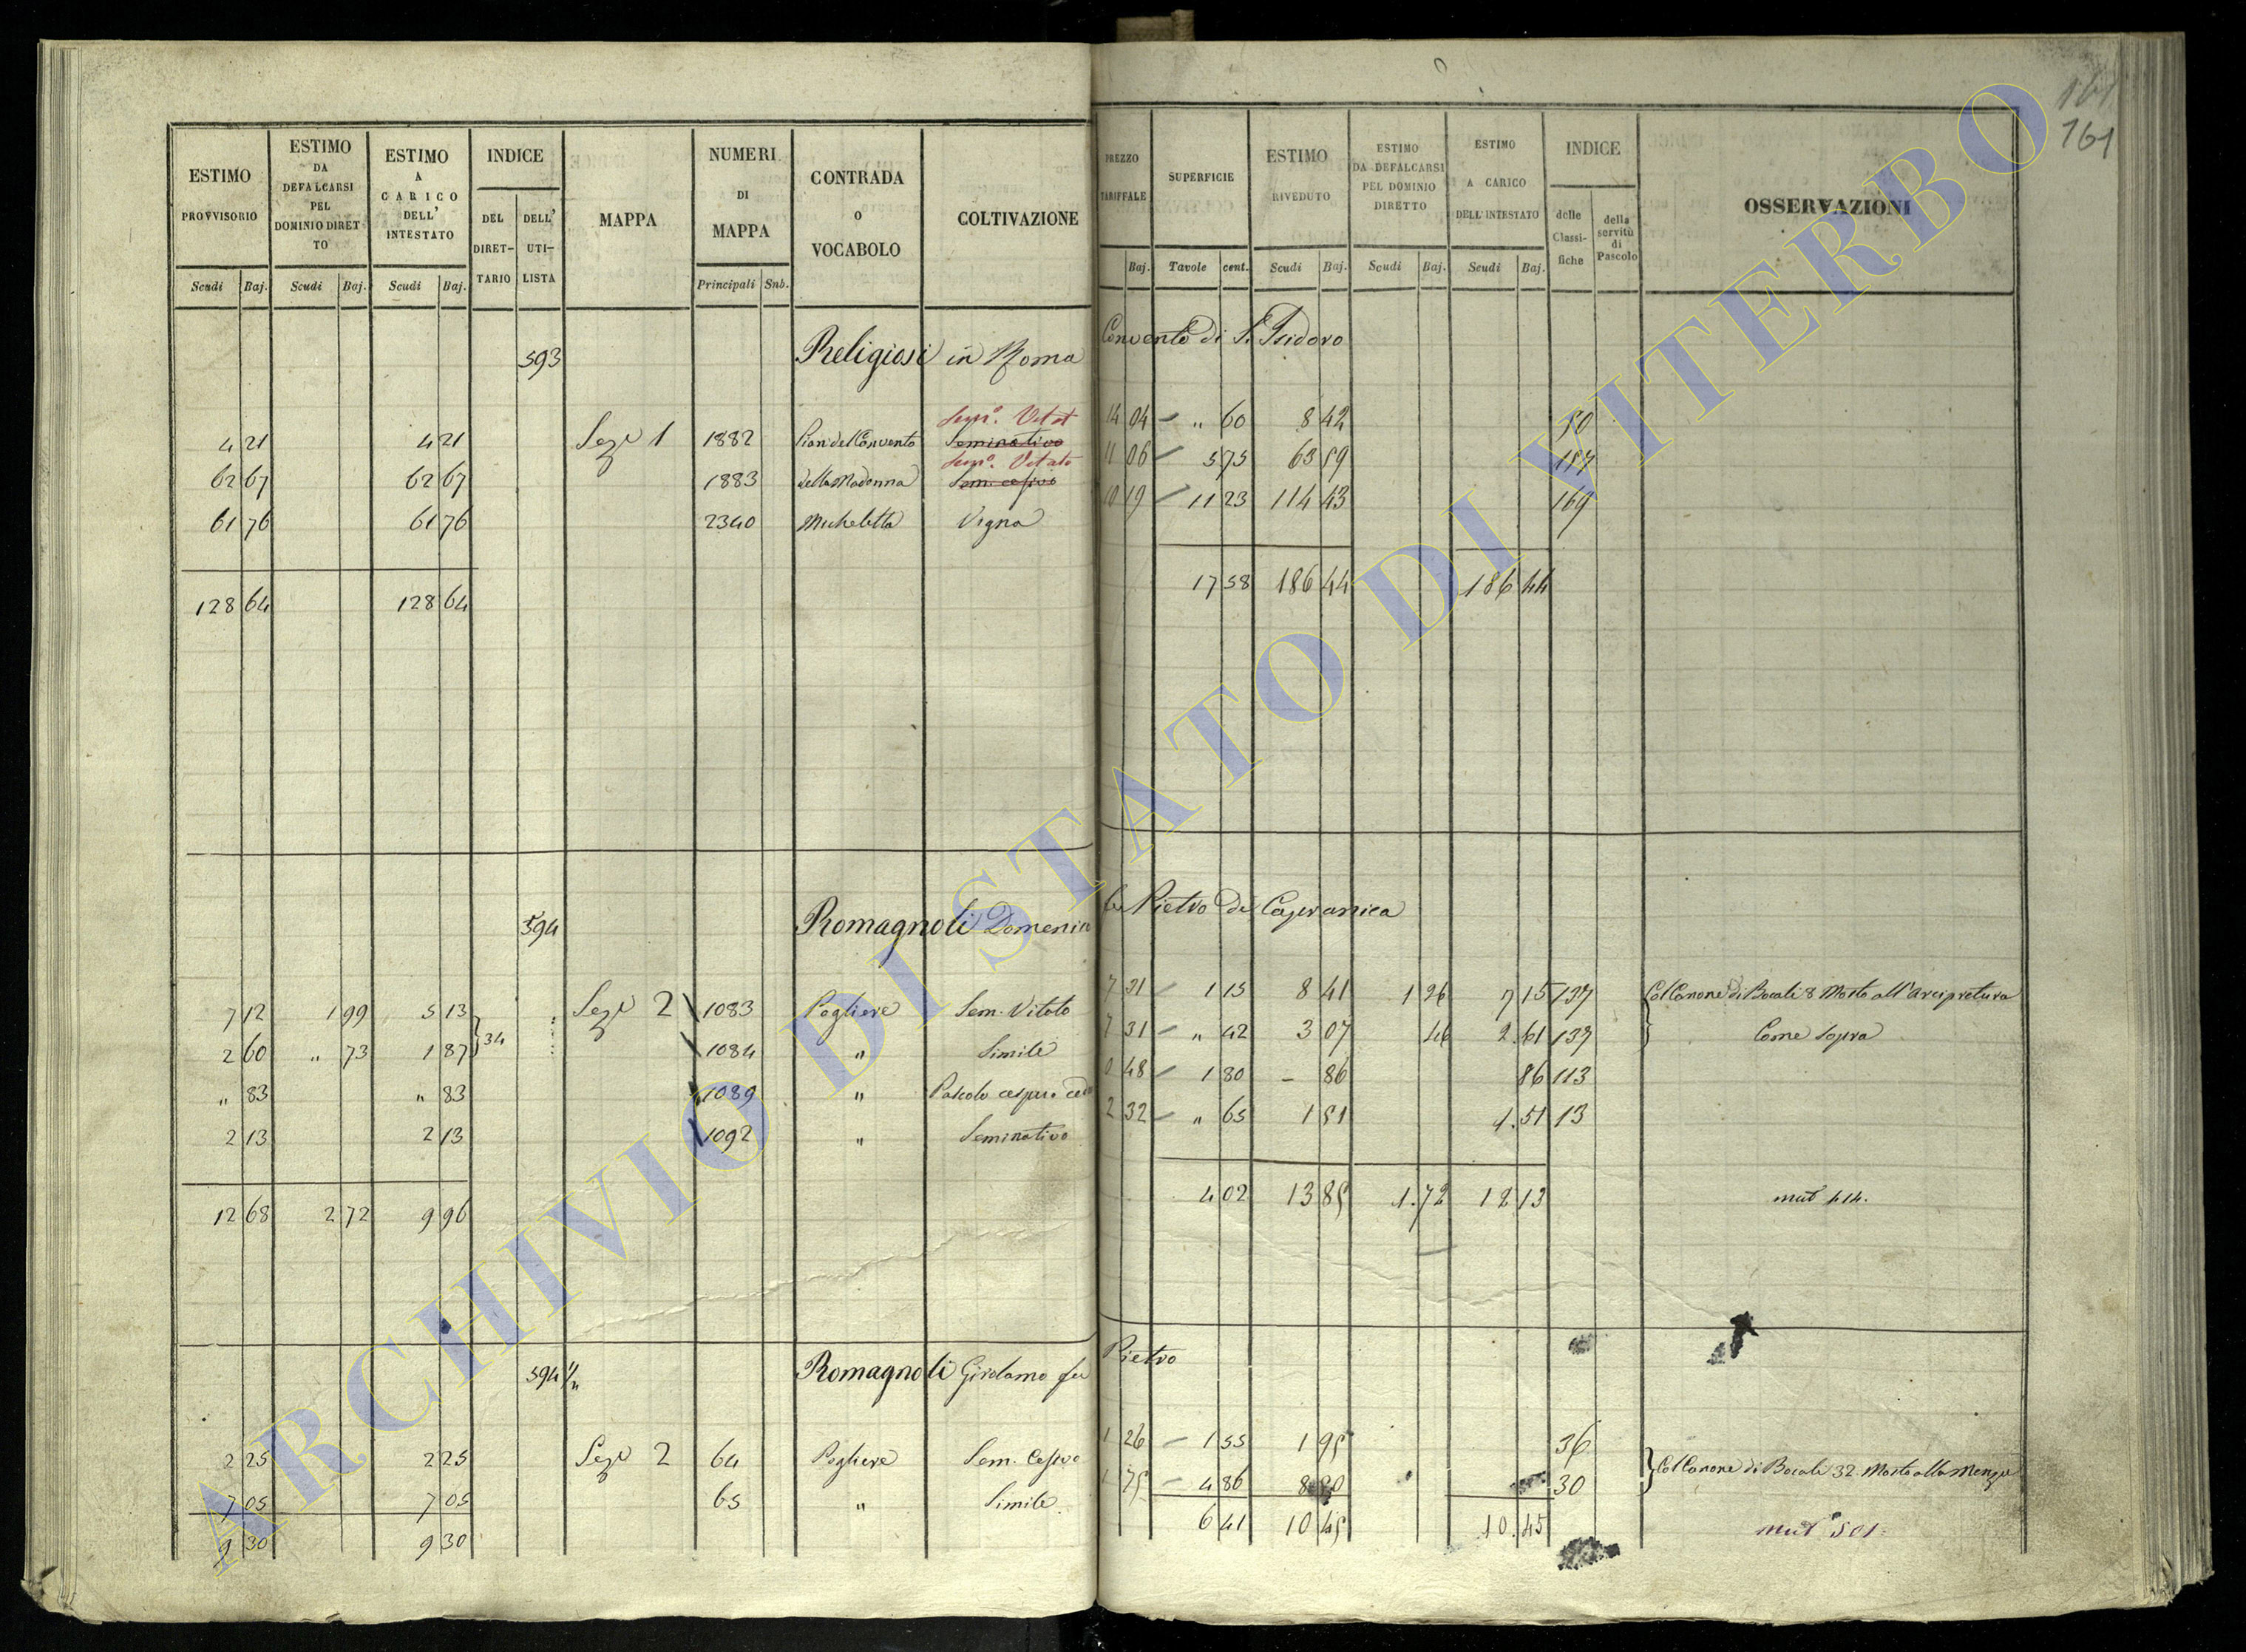 161
161
ESTIMO PROVVISORIO
ESTIMO DA DEFALCARSI PEL DOMINIO DIRETTO
ESTIMO A CARICO DELL' INTESTATO
INDICE
DEL DIRETTARIO
DELL' UTILISTA
MAPPA
NUMERI DI MAPPA
CONTRADA O VOCABOLO
COLTIVAZIONE
PREZZO TARIFFALE
SUPERFICIE
ESTIMO RIVEDUTO
ESTIMO DA DEFALCARSI PEL DOMINIO DIRETTO
ESTIMO A CARICO DELL' INTESTATO
INDICE
delle Classifiche
della servitù di Pascolo
OSSERVAZIONI
Scudi Baj. Scudi Baj. Scudi Baj. Principali Snb. Baj. Tavole cent. Scudi Baj. Scudi Baj. Scudi Baj.
593 Religiosi in Roma Convento di S. Isidoro
Sem.o Vitat
4 21 4 21 Sez.e 1 1882 Pian del Convento Seminativo 14 04 " 60 8 42 50
Sem.o Vitato
62 67 62 67 1883 della Madonna Sem. cesivo 11 06 5 75 63 59 157
61 76 61 76 2340 Micheletta Vigna 10 19 11 23 114 43 169
128 64 128 64 17 58 186 44 186 44
594 Romagnoli Domenico fu Pietro di Capranica
7 12 1 99 5 13 34 Sez.e 2 1083 Pogliere Sem. Vitato 7 31 1 15 8 41 1 26 7 15 137 Col Canone di Bocali 8 Mosto all'Arcipretura
2 60 " 73 1 87 1084 " Simile 7 31 " 42 3 07 46 2.61 137 Come sopra
" 83 " 83 1089 " Pascolo 0 48 1 80 - 86 86 113
2 13 2 13 1092 " Seminativo 2 32 " 65 1 51 1.51 13
12 68 2 72 9 96 4 02 13 85 1.72 12 13 mut 414.
594 1/11 Romagnoli Girolamo fu Pietro
2 25 2 25 Sez.e 2 64 Pogliere Sem. Cesivo 1 26 1 55 1 95 36
7 05 7 05 65 " Simile 1 75 4 86 8 50 30 Col Canone di Bocali 32 Mosto alla Mensa
9 30 9 30 6 41 10 45 10.45 mut 501.
ARCHIVIO DI STATO DI VITERBO